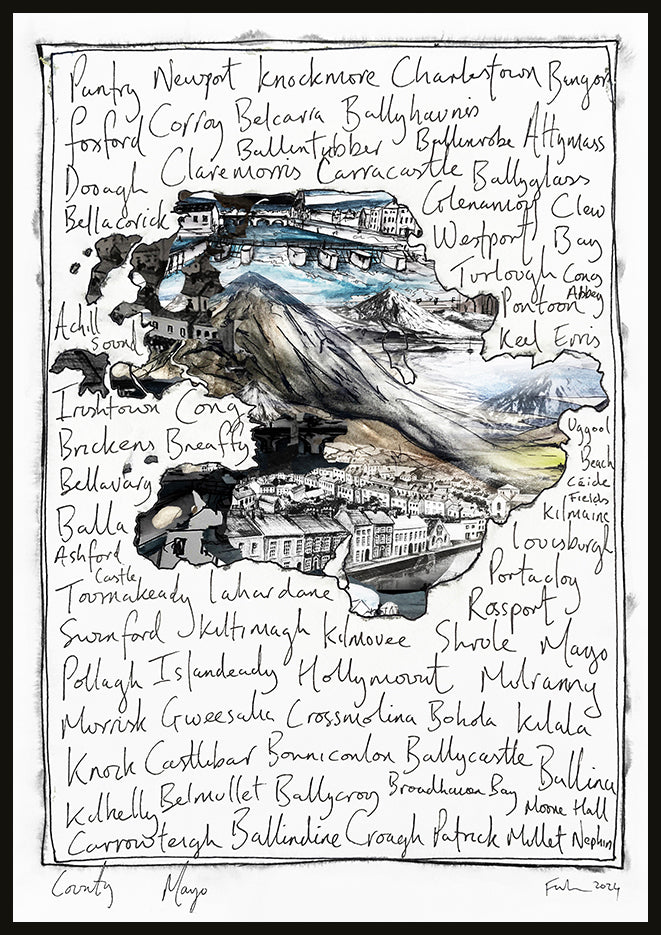 Puntry Newport Knockmore Charlestown Bangor
Foxford Corroy Belcarra Ballyhaunis
Ballintubber Ballinrobe Attymass
Dooagh Claremorris Carracastle Ballyglass
Bellacorick Glenamoy Clew
Westport Bay
Turlough Cong
Abbey
Pontoon
Achill
Sound
Keel Erris
Irishtown Cong
Uggool
Brickens Breaffy
Beach
Bellavary
Céide
Fields
Balla
Kilmaine
Ashford
Castle
Louisburgh
Toormakeady Lahardane
Portacloy
Rossport
Swinford Kiltimagh Kilmovee Shrule Mayo
Pollagh Islandeady Hollymount Mulranny
Murrisk Gweesalia Crossmolina Bohola Kilala
Knock Castlebar Bonniconlon Ballycastle Ballina
Kilkelly Belmullet Ballycroy Broadhaven Bay
Moore Hall
Carrowteigh Ballindine Croagh Patrick Mullet Nephin
County Mayo
2024